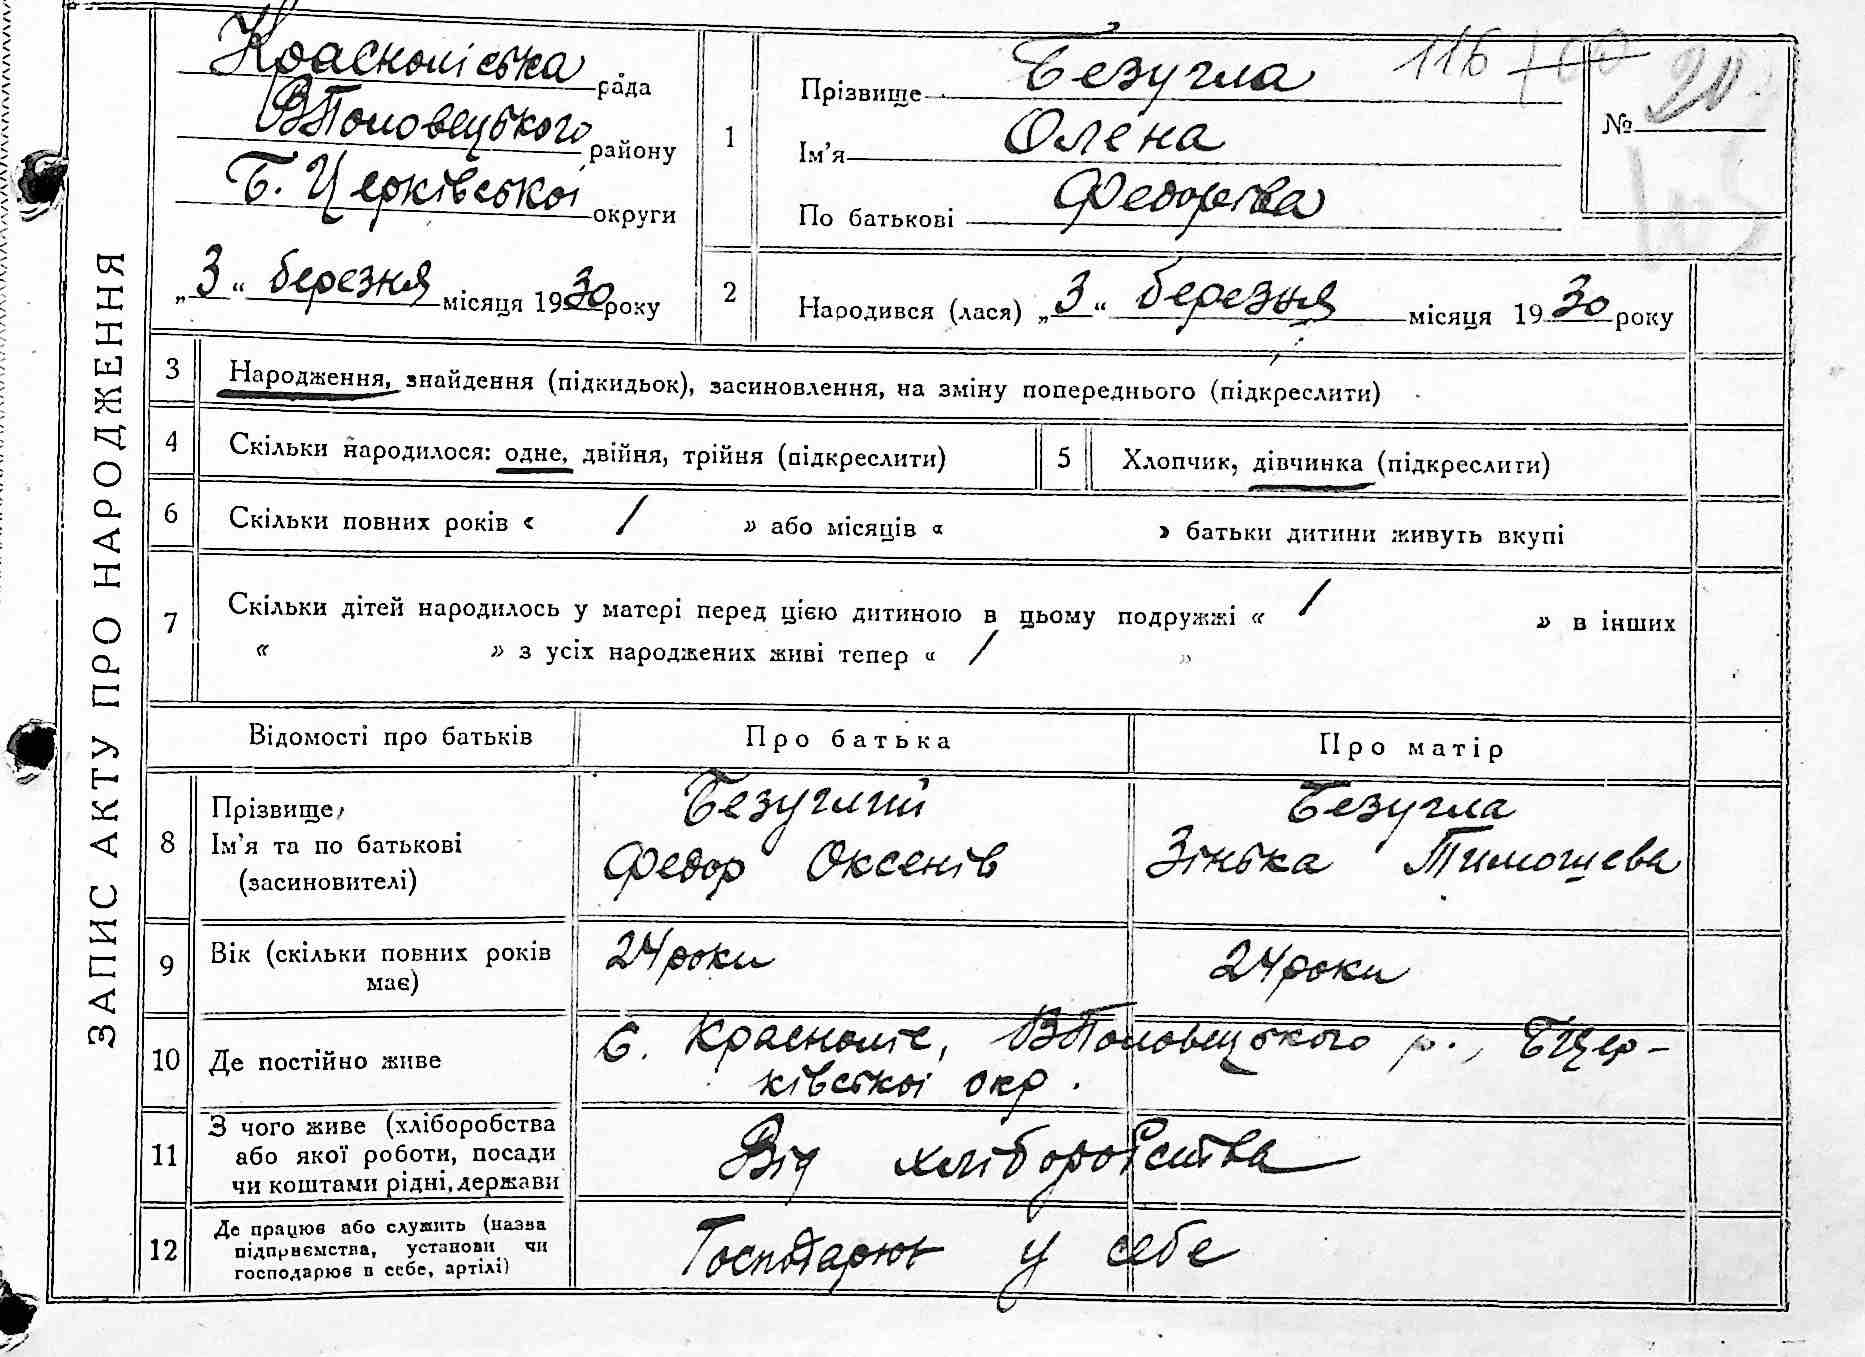 ЗАПИС АКТУ ПРО НАРОДЖЕННЯ
Красноліська рада
ВПоловецького району
Б. Церківської округи
„3“ березня місяця 1930 року
1
Прізвище Безугла
Ім'я Олена
По батькові Федорівна
116
№ 20
2
Народився (лася) „3“ березня місяця 1930 року
3 Народження, знайдення (підкидьок), засиновлення, на зміну попереднього (підкреслити)
4 Скільки народилося: одне, двійня, трійня (підкреслити)
5 Хлопчик, дівчинка (підкреслити)
6 Скільки повних років « / » або місяців « » батьки дитини живуть вкупі
7 Скільки дітей народилось у матері перед цією дитиною в цьому подружжі « / » в інших
« » з усіх народжених живі тепер « / »
Відомості про батьків Про батька Про матір
8
Прізвище,
Ім'я та по батькові
(засиновителі)
Безуглий
Федор Оксенів
Безугла
Зінька Тимошева
9
Вік (скільки повних років
має)
24 роки
24 роки
10 Де постійно живе
с. Красноліс, ВПоловецького р., БЦер-
ківської окр.
11
З чого живе (хліборобства
або якої роботи, посади
чи коштами рідні, держави
Від хліборобства
12
Де працює або служить (назва
підприємства, установи чи
господарює в себе, артілі)
Господарюют у себе